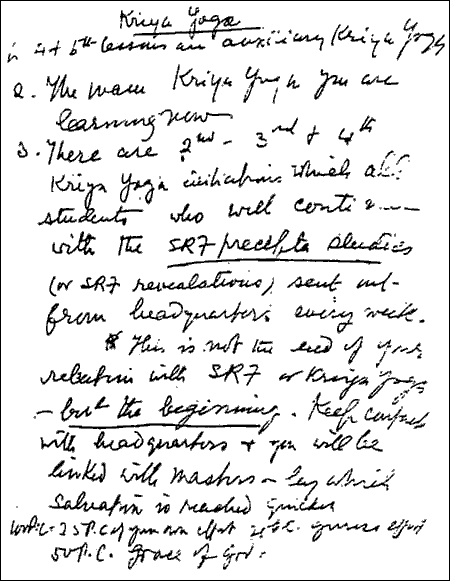 Kriya Yoga
4 & 5th lessons are auxiliary Kriya Yoga
2. The main Kriya Yoga you are
learning now
3. There are 2nd - 3rd & 4th
Kriya Yoga initiations which all
students who will contin
with the SRF precepta studies
(or SRF revelations) sent out
from headquarters every week.
This is not the end of your
relation with SRF or Kriya Yoga
- but the beginning. Keep contact
with headquarters & you will be
linked with masters - by which
salvation is reached quicker
100 P.C. = 25 P.C. of your own effort gurus effort
50 P.C. Grace of God.